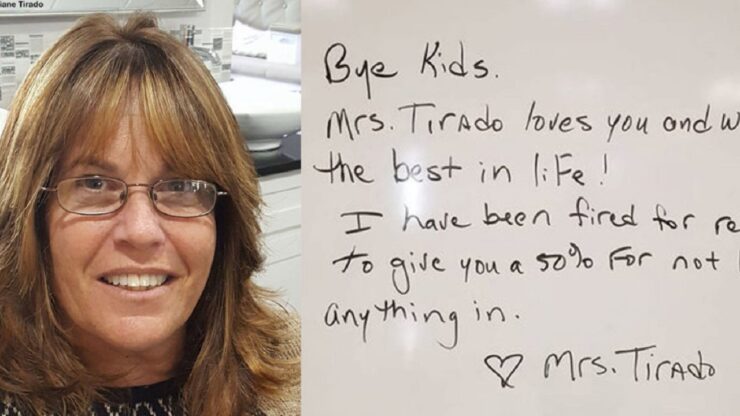 iane Tirado
Bye Kids.
Mrs. Tirado loves you and w
the best in life!
I have been fired for re
to give you a 50% for not
anything in.
♡ Mrs. Tirado